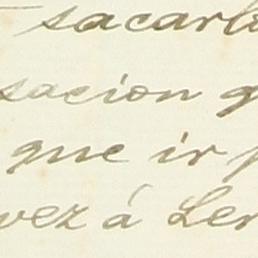 sacarl
sacion g
que ir p
vez á Ler